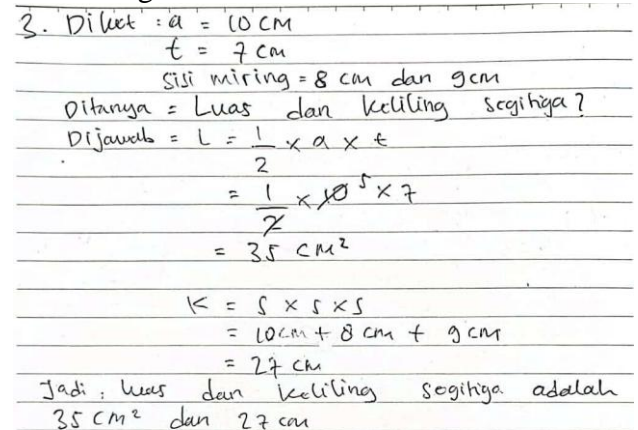 3. Diket : a = 10 cm
t = 7 cm
Sisi miring = 8 cm dan 9cm
Ditanya = Luas dan keliling segitiga?
Dijawab = L = 1/2 x a x t
= 1/2 x 10 5 x 7
= 35 cm²
K = S x S x S
= 10cm + 8 cm + 9 cm
= 27 cm
Jadi, luas dan keliling segitiga adalah
35 cm² dan 27 cm